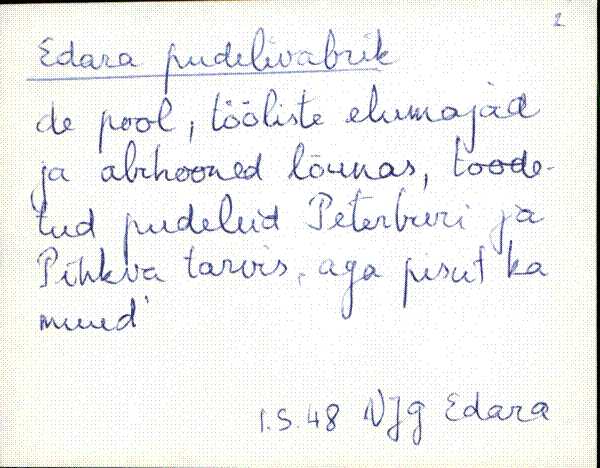 2
Edara pudelivabrik
de pool, tööliste elumajad
ja abihooned lõunas, toode-
tud pudeleid Peterburi ja
Pihkva tarvis, aga pisut ka
muud
1.S.48 NJg Edara